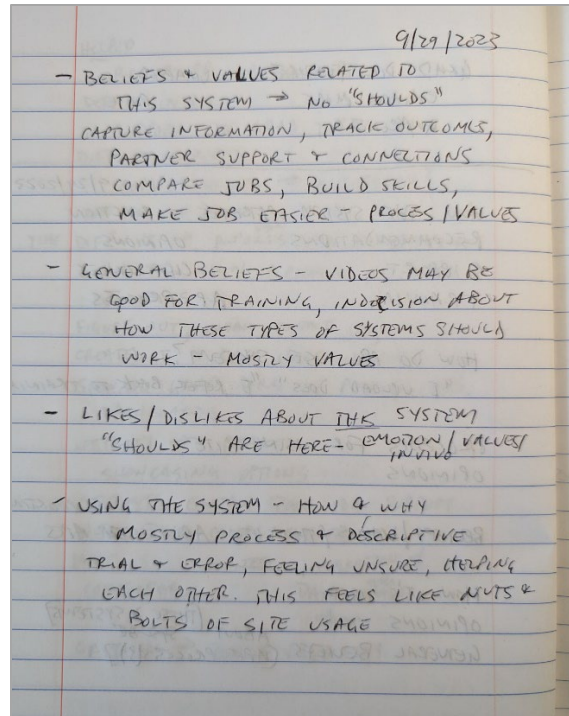 9/29/2023
- BELIEFS & VALUES RELATED TO
THIS SYSTEM → NO "SHOULDS"
CAPTURE INFORMATION, TRACK OUTCOMES,
PARTNER SUPPORT & CONNECTIONS
COMPARE JOBS, BUILD SKILLS,
MAKE JOB EASIER - PROCESS/VALUES
- GENERAL BELIEFS - VIDEOS MAY BE
GOOD FOR TRAINING, INDECISION ABOUT
HOW THESE TYPES OF SYSTEMS SHOULD
WORK - MOSTLY VALUES
- LIKES/DISLIKES ABOUT THIS SYSTEM
"SHOULDS" ARE HERE - EMOTION/VALUES/
INVIVO
- USING THE SYSTEM - HOW & WHY
MOSTLY PROCESS & DESCRIPTIVE
TRIAL & ERROR, FEELING UNSURE, HELPING
EACH OTHER. THIS FEELS LIKE NUTS &
BOLTS OF SITE USAGE